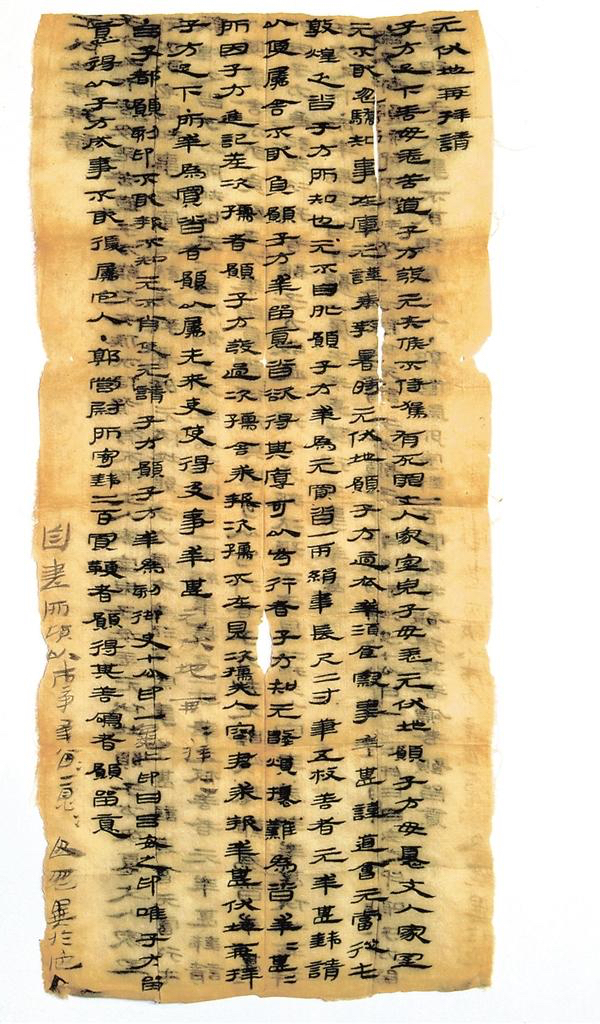 元伏地再拜請
子方足下善毋恙苦道子方發元失候不侍駕有死罪丈人家室兒子毋恙元伏地願子方毋憂丈人家室
元不敢忽驕知事在庫元謹奉教暑時元伏地願子方適衣幸酒食察事幸甚謹道會元當從屯
敦煌乏沓子方所知也元不自外願子方幸為元買沓一兩絹韋長尺二寸筆五枚善者元幸甚錢請
以便屬舍不敢負願子方幸留意沓欲得其厚可以步行者子方知元數煩擾難為沓幸=甚=
所因子方進記差次孺者願子方發過次孺舍求報次孺不在見次孺夫人容君求報幸甚伏地再拜
子方足下所幸為買沓者願以屬先來吏使得及事幸甚元伏地再=拜=
呂子都願刻印不敢報不知元不肖使元請子方願子方幸為刻御史七分印一龜上印曰呂安之印唯子方留
意得以子方成事不敢復屬它人·郭營尉所寄錢二百買鞭者願得其善鳴者願留意
自書所願以市事幸留=意=毋忽異於它人